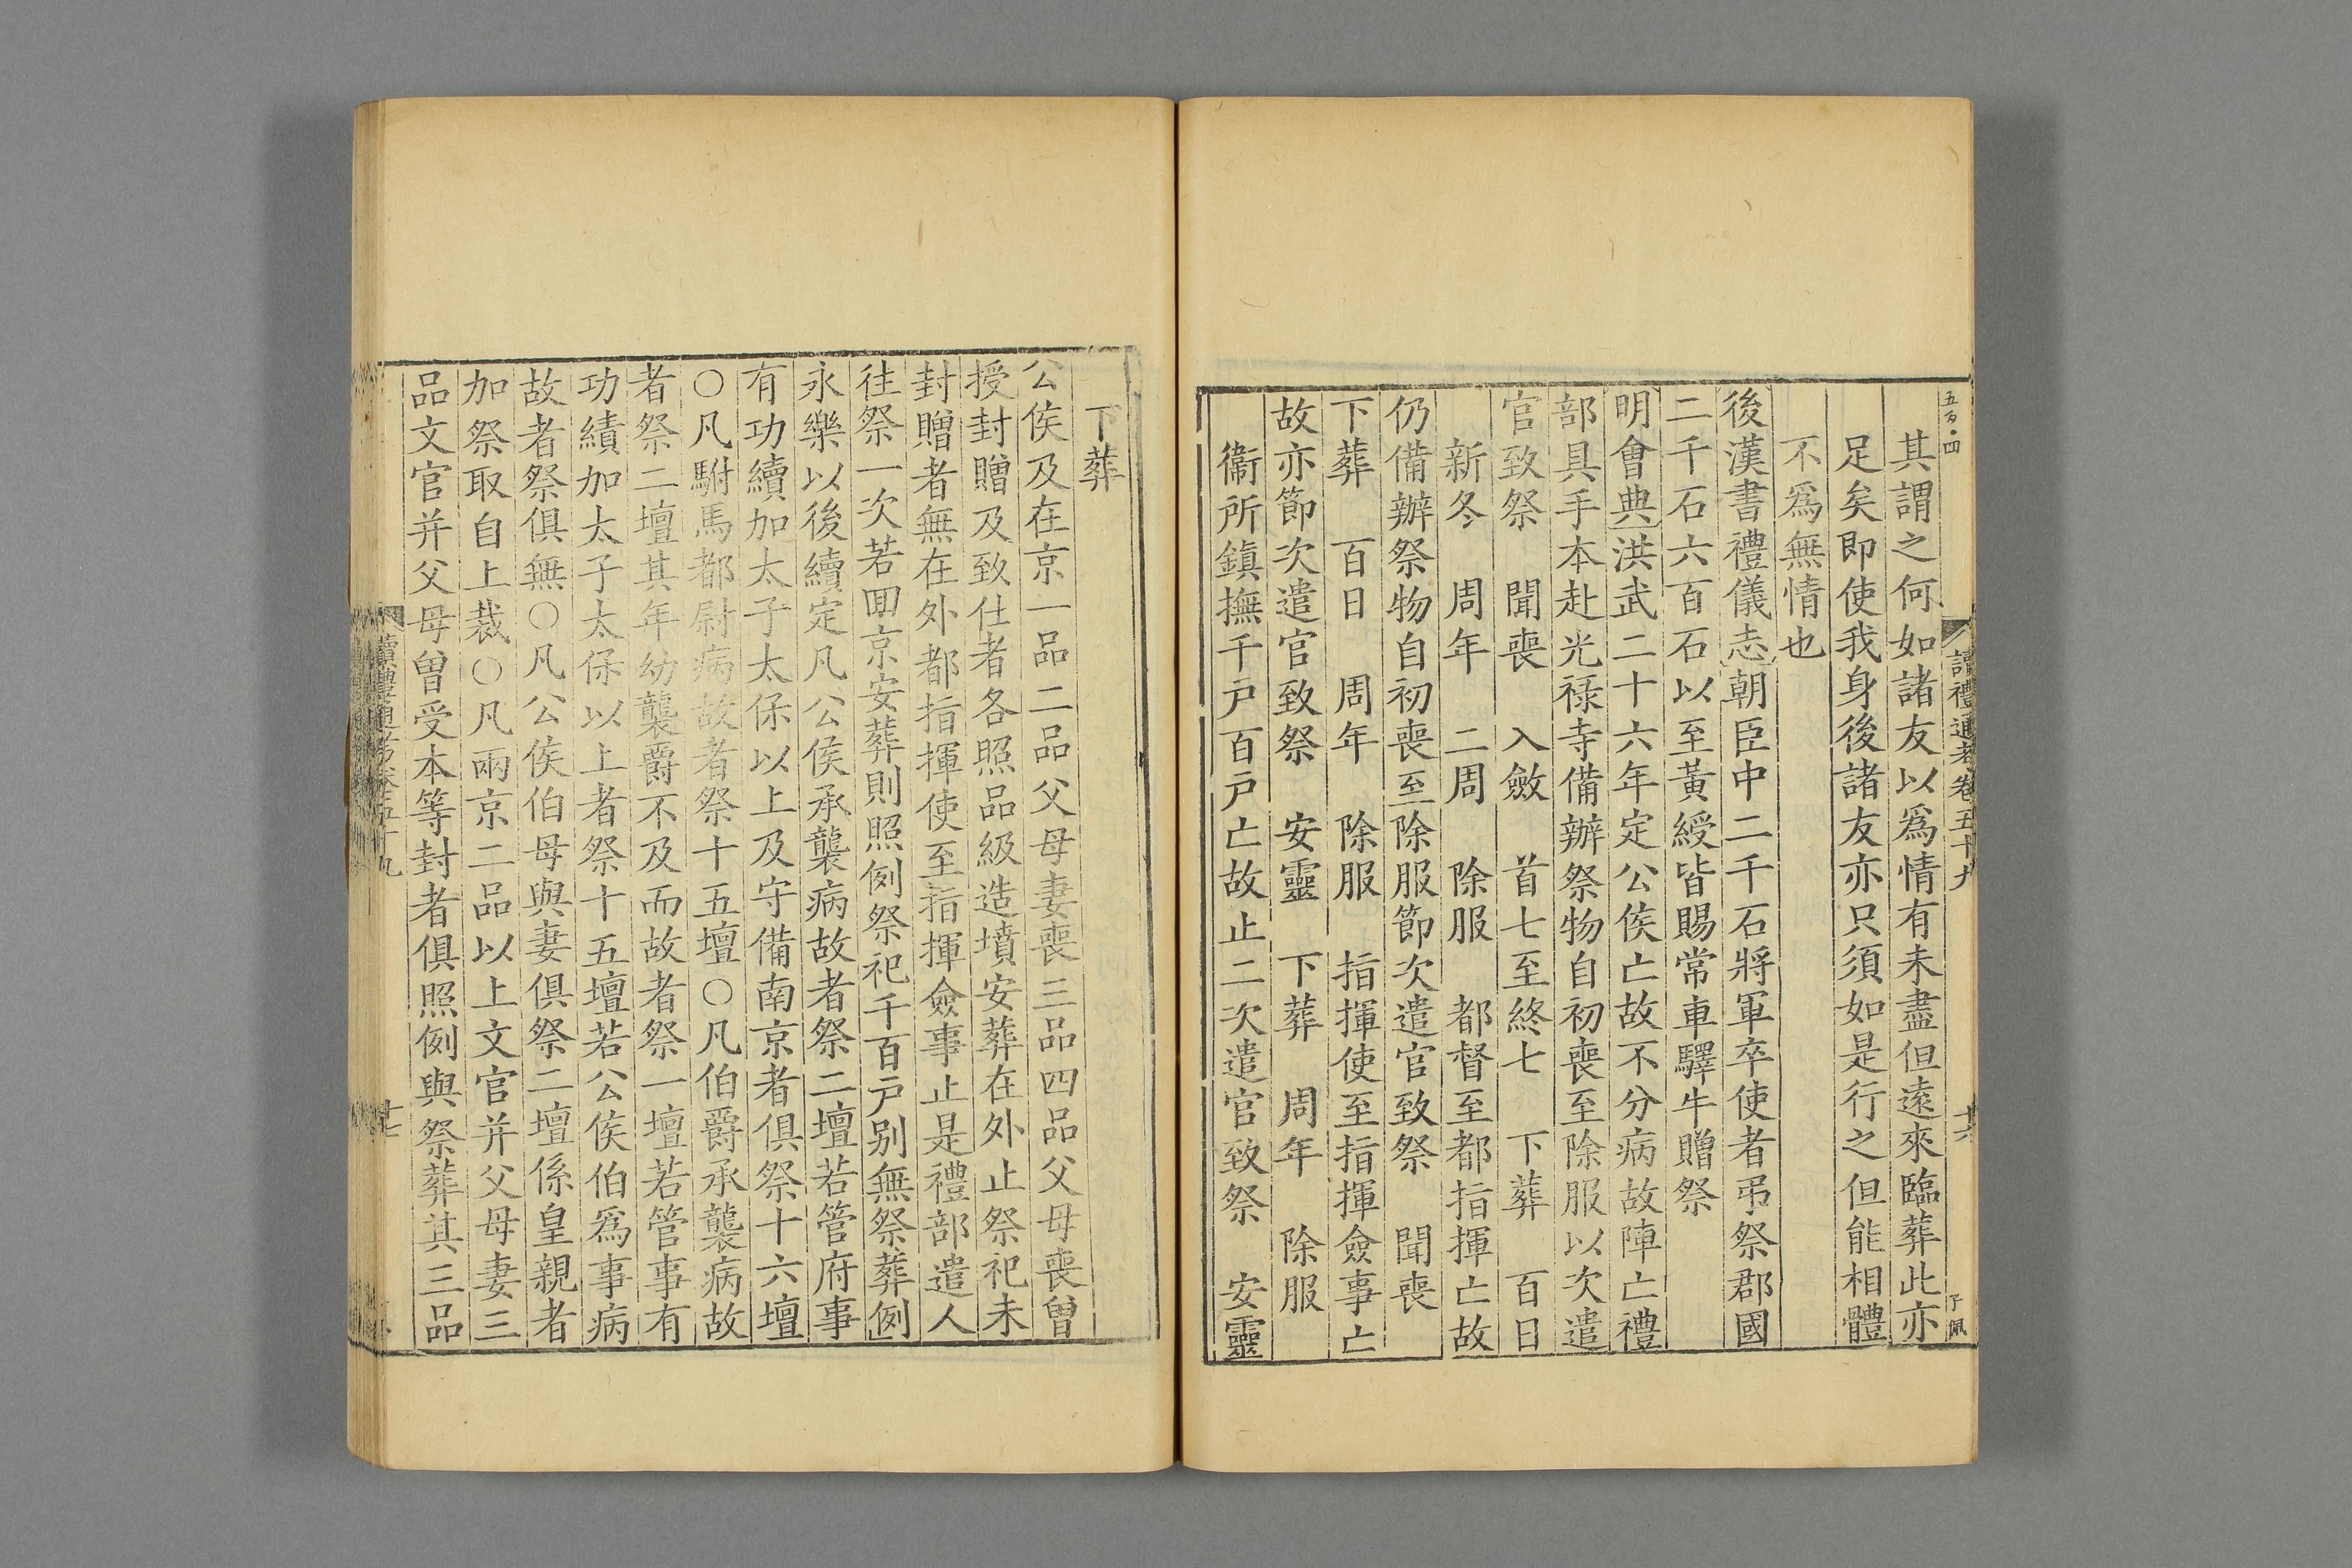 五百〇四
讀禮通考卷五十九
十六
子佩
其謂之何如諸友以爲情有未盡但遠來臨葬此亦
足矣即使我身後諸友亦只須如是行之但能相體
不爲無情也
後漢書禮儀志朝臣中二千石將軍卒使者弔祭郡國
二千石六百石以至黃綬皆賜常車驛牛贈祭
明會典洪武二十六年定公侯亡故不分病故陣亡禮
部具手本赴光祿寺備辦祭物自初喪至除服以次遣
官致祭　聞喪　入斂　首七至終七　下葬　百日
新冬　周年　二周　除服　都督至都指揮亡故
仍備辦祭物自初喪至除服節次遣官致祭　聞喪
下葬　百日　周年　除服　指揮使至指揮僉事亡
故亦節次遣官致祭　安靈　下葬　周年　除服
衞所鎮撫千戶百戶亡故止二次遣官致祭　安靈
下葬
公侯及在京一品二品父母妻喪三品四品父母喪曾
授封贈及致仕者各照品級造墳安葬在外止祭祀未
封贈者無在外都指揮使至指揮僉事止是禮部遣人
往祭一次若回京安葬則照例祭祀千百戶別無祭葬例
永樂以後續定凡公侯承襲病故者祭二壇若管府事
有功續加太子太保以上及守備南京者俱祭十六壇
○凡駙馬都尉病故者祭十五壇○凡伯爵承襲病故
者祭二壇其年幼襲爵不及而故者祭一壇若管事有
功績加太子太保以上者祭十五壇若公侯伯爲事病
故者祭俱無○凡公侯伯母與妻俱祭二壇係皇親者
加祭取自上裁○凡兩京二品以上文官并父母妻三
品文官并父母曾受本等封者俱照例與祭葬其三品
讀禮通考卷五十九
十七